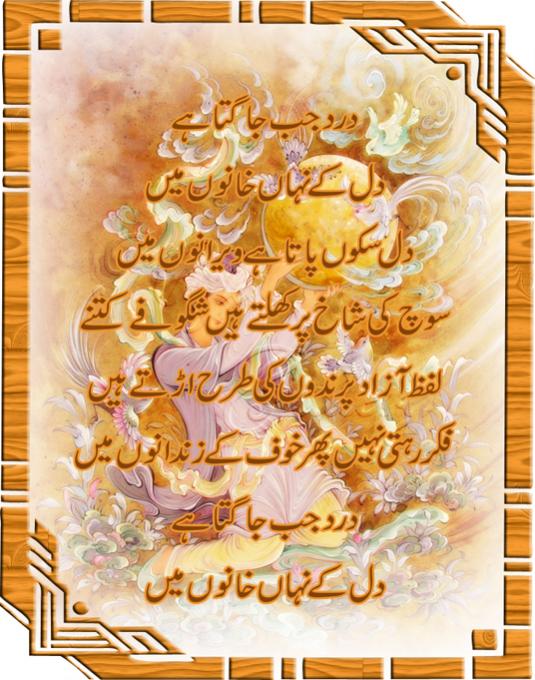 درد جب جاگتا ہے
دل کے نہاں خانوں میں
دل سکوں پاتا ہے ویرانوں میں
سوچ کی شاخ پر کھلتے ہیں شگوفے کتنے
لفظ آزاد پرندوں کی طرح اڑتے ہیں
فکر رہتی نہیں پھر خوف کے زندانوں میں
درد جب جاگتا ہے
دل کے نہاں خانوں میں